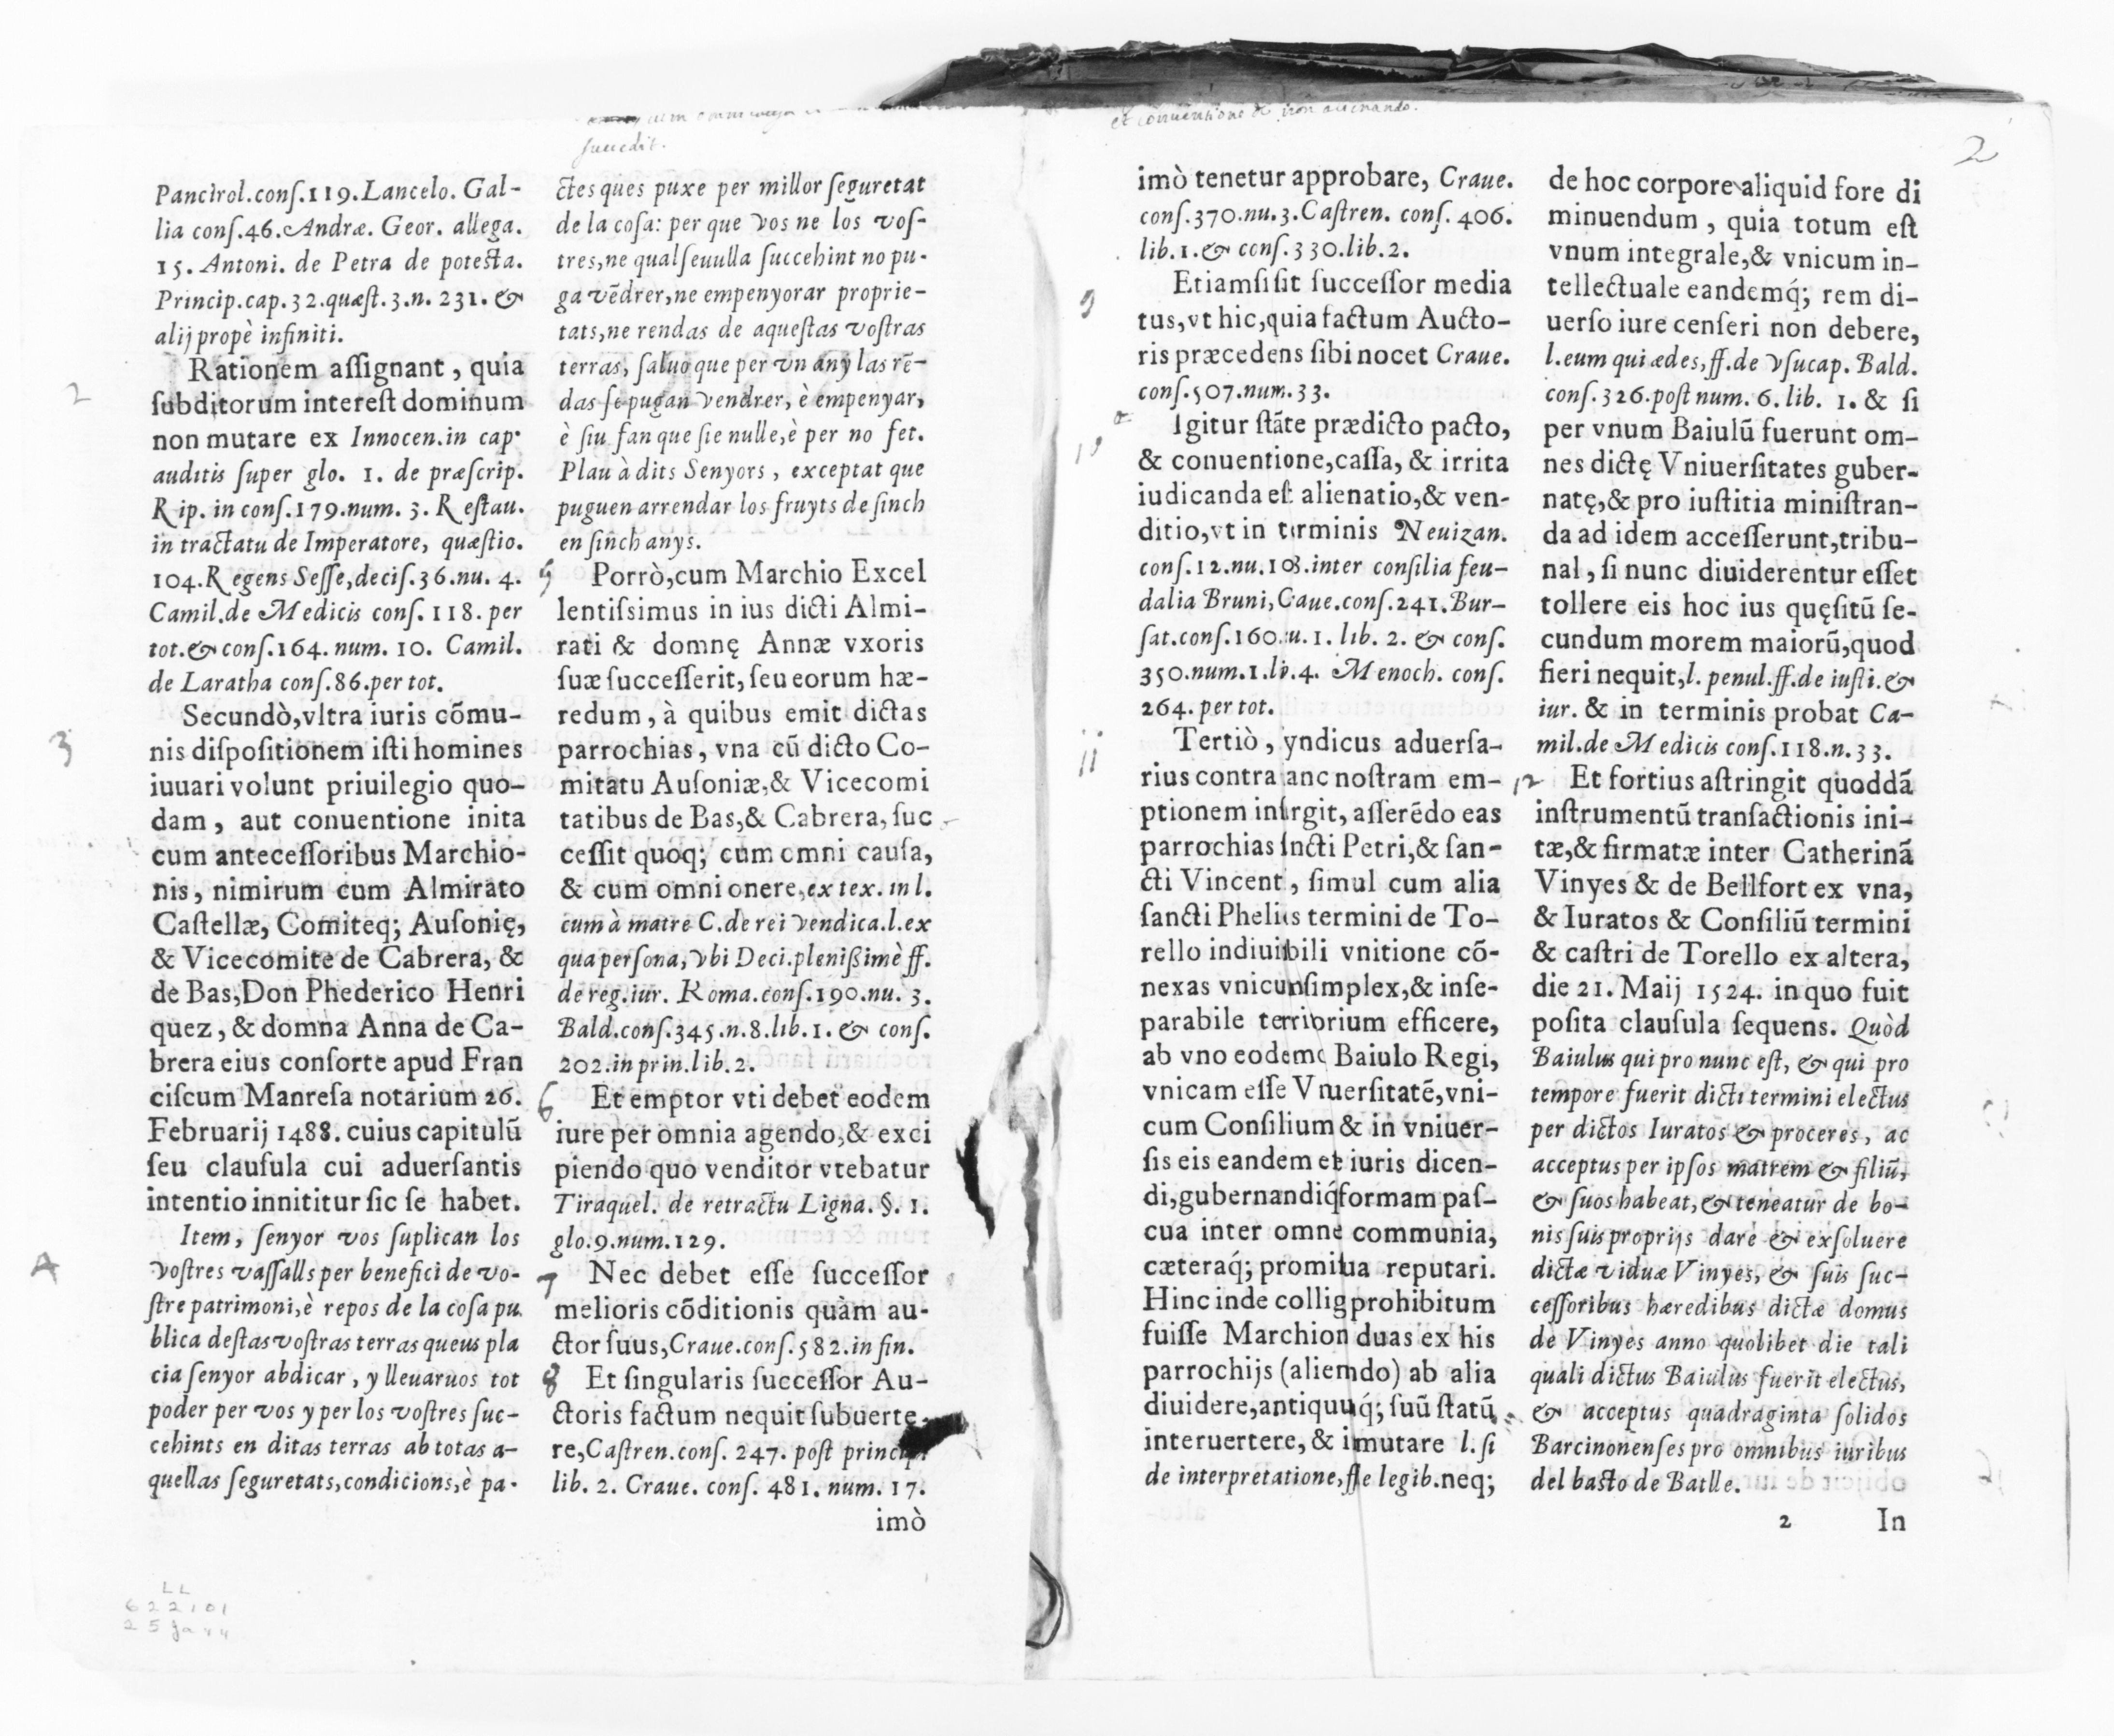 succedit.
Pancirol.conſ.119.Lancelo. Gal-
lia conſ.46.Andræ. Geor. allega.
15. Antoni. de Petra de poteſta.
Princip.cap.32.quæſt.3.n. 231. &
alij propè infiniti.
2
Rationem aſſignant, quia
ſubditorum intereſt dominum
non mutare ex Innocen.in cap.
auditis ſuper glo. 1. de præſcrip.
Rip. in conſ.179.num. 3. Reſtau.
in tractatu de Imperatore, quæſtio.
104.Regens Seſſe,deciſ.36.nu. 4.
Camil.de Medicis conſ. 118. per
tot.& conſ.164. num. 10. Camil.
de Laratha conſ.86.per tot.
3
Secundò,vltra iuris cõmu-
nis diſpoſitionem iſti homines
iuuari volunt priuilegio quo-
dam, aut conuentione inita
cum anteceſſoribus Marchio-
nis, nimirum cum Almirato
Caſtellæ, Comiteq; Auſonię,
& Vicecomite de Cabrera, &
de Bas,Don Phederico Henri
quez, & domna Anna de Ca-
brera eius conſorte apud Fran
ciſcum Manreſa notarium 26.
Februarij 1488. cuius capitulũ
ſeu clauſula cui aduerſantis
intentio innititur ſic ſe habet.
4
Item, ſenyor vos ſuplican los
voſtres vaſſalls per benefici de vo-
ſtre patrimoni,è repos de la coſa pu.
blica deſtas voſtras terras queus pla
cia ſenyor abdicar, y lleuaruos tot
poder per vos y per los voſtres ſuc-
cehints en ditas terras ab totas a-
quellas ſeguretats,condicions,è pa-
ctes ques puxe per millor ſeguretat
de la coſa: per que vos ne los voſ-
tres,ne qualſeuulla ſuccehint no pu-
ga vẽdrer,ne empenyorar proprie-
tats,ne rendas de aqueſtas voſtras
terras, ſaluo que per vn any las rẽ-
das ſe pugan vendrer, è empenyar,
è ſiu fan que ſie nulle,è per no fet.
Plau à dits Senyors, exceptat que
puguen arrendar los fruyts de ſinch
en ſinch anys.
5
Porrò,cum Marchio Excel
lentiſsimus in ius dicti Almi-
rati & domnę Annæ vxoris
ſuæ ſucceſſerit, ſeu eorum hæ-
redum, à quibus emit dictas
parrochias, vna cũ dicto Co-
mitatu Auſoniæ,& Vicecomi
tatibus de Bas,& Cabrera, ſuc
ceſſit quoq; cum omni cauſa,
& cum omni onere,ex tex. in l.
cum à matre C.de rei vendica.l.ex
qua perſona, vbi Deci.pleniſsimè ff.
de reg.iur. Roma.conſ.190.nu. 3.
Bald.conſ.345.n.8.lib.1.& conſ.
202.in prin.lib.2.
6
Et emptor vti debet eodem
iure per omnia agendo,& exci
piendo quo venditor vtebatur
Tiraquel. de retractu Ligna. §. 1.
glo.9.num.129.
7
Nec debet eſſe ſucceſſor
melioris cõditionis quàm au-
ctor ſuus,Craue.conſ.582.in fin.
8
Et ſingularis ſucceſſor Au-
ctoris factum nequit ſubuerte-
re,Caſtren.conſ. 247. poſt princip.
lib. 2. Craue. conſ. 481. num. 17.
imò
LL
622101
25 Ja 44
2
et conventione de non alienando.
imò tenetur approbare, Craue.
conſ.370.nu.3.Caſtren. conſ. 406.
lib.1.& conſ.330.lib.2.
9
Etiamſi ſit ſucceſſor media
tus,vt hic,quia factum Aucto-
ris præcedens ſibi nocet Craue.
conſ.507.num.33.
10
Igitur ſtãte prædicto pacto,
& conuentione,caſſa, & irrita
iudicanda eſt alienatio,& ven-
ditio,vt in terminis Neuizan.
conſ.12.nu.108.inter conſilia feu-
dalia Bruni, Caue.conſ.241.Bur-
ſat.conſ.160.u. 1. lib. 2. & conſ.
350.num.1.li.4. Menoch. conſ.
264. per tot.
11
Tertiò, yndicus aduerſa-
rius contra anc noſtram em-
ptionem inſrgit, aſſerẽdo eas
parrochias ſncti Petri,& ſan-
cti Vincent, ſimul cum alia
ſancti Phelius termini de To-
rello indiuiſibili vnitione cõ-
nexas vnicunſimplex,& inſe-
parabile terriorium efficere,
ab vno eodemc Baiulo Regi,
vnicam eſſe Vniuerſitatẽ,vni-
cum Conſilium & in vniuer-
ſis eis eandem et iuris dicen-
di,gubernandiq́ formam paſ-
cua inter omne communia,
cæteraq́; promiſua reputari.
Hinc inde collig prohibitum
fuiſſe Marchion duas ex his
parrochijs (aliendo) ab alia
diuidere,antiquuq́; ſuũ ſtatũ
interuertere, & imutare l. ſi
de interpretatione,ff.de legib.neq;
de hoc corpore aliquid fore di
minuendum, quia totum eſt
vnum integrale,& vnicum in-
tellectuale eandemq́; rem di-
uerſo iure cenſeri non debere,
l.eum qui ædes,ff.de vſucap. Bald.
conſ.326.poſt num. 6. lib. 1. & ſi
per vnum Baiulũ fuerunt om-
nes dictę Vniuerſitates guber-
natę,& pro iuſtitia miniſtran-
da ad idem acceſſerunt,tribu-
nal, ſi nunc diuiderentur eſſet
tollere eis hoc ius quęſitũ ſe-
cundum morem maiorũ,quod
fieri nequit,l. penul.ff.de iuſti.&
iur. & in terminis probat Ca-
mil.de Medicis conſ.118.n.33.
12
Et fortius aſtringit quoddã
inſtrumentũ tranſactionis ini-
tæ,& firmatæ inter Catherinã
Vinyes & de Bellfort ex vna,
& Iuratos & Conſiliũ termini
& caſtri de Torello ex altera,
die 21. Maij 1524. in quo fuit
poſita clauſula ſequens. Quòd
Baiulus qui pro nunc eſt, & qui pro
tempore fuerit dicti termini electus
per dictos Iuratos & proceres, ac
acceptus per ipſos matrem & filiũ,
& ſuos habeat, & teneatur de bo-
nis ſuis proprijs dare & exſoluere
dictæ viduæ Vinyes, & ſuis ſuc-
ceſſoribus hæredibus dictæ domus
de Vinyes anno quolibet die tali
quali dictus Baiulus fuerit electus,
& acceptus quadraginta ſolidos
Barcinonenſes pro omnibus iuribus
del baſto de Batlle.
2 In